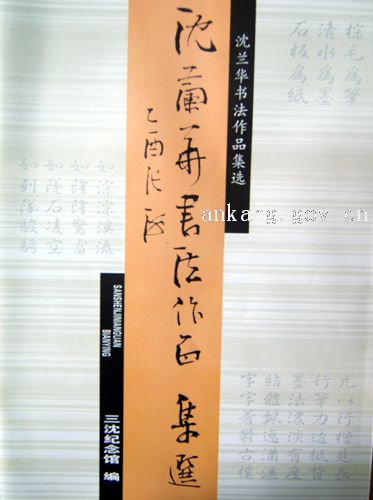 棕毛為筆
清水為墨
石板為紙
沈兰华书法作品集选
沈蘭華書法作品集選
乙酉
如淙淙溪流
如隆隆驚雷
石凌空
如列隊駿騎
ankang.gov.cn
SANSHENJINIANGUAN
BIANYING
三沈纪念馆 编
尤以行楷見長
行筆力透紙背
墨法濃淡有度
結體飄逸瀟灑
字字蒼勁古樸